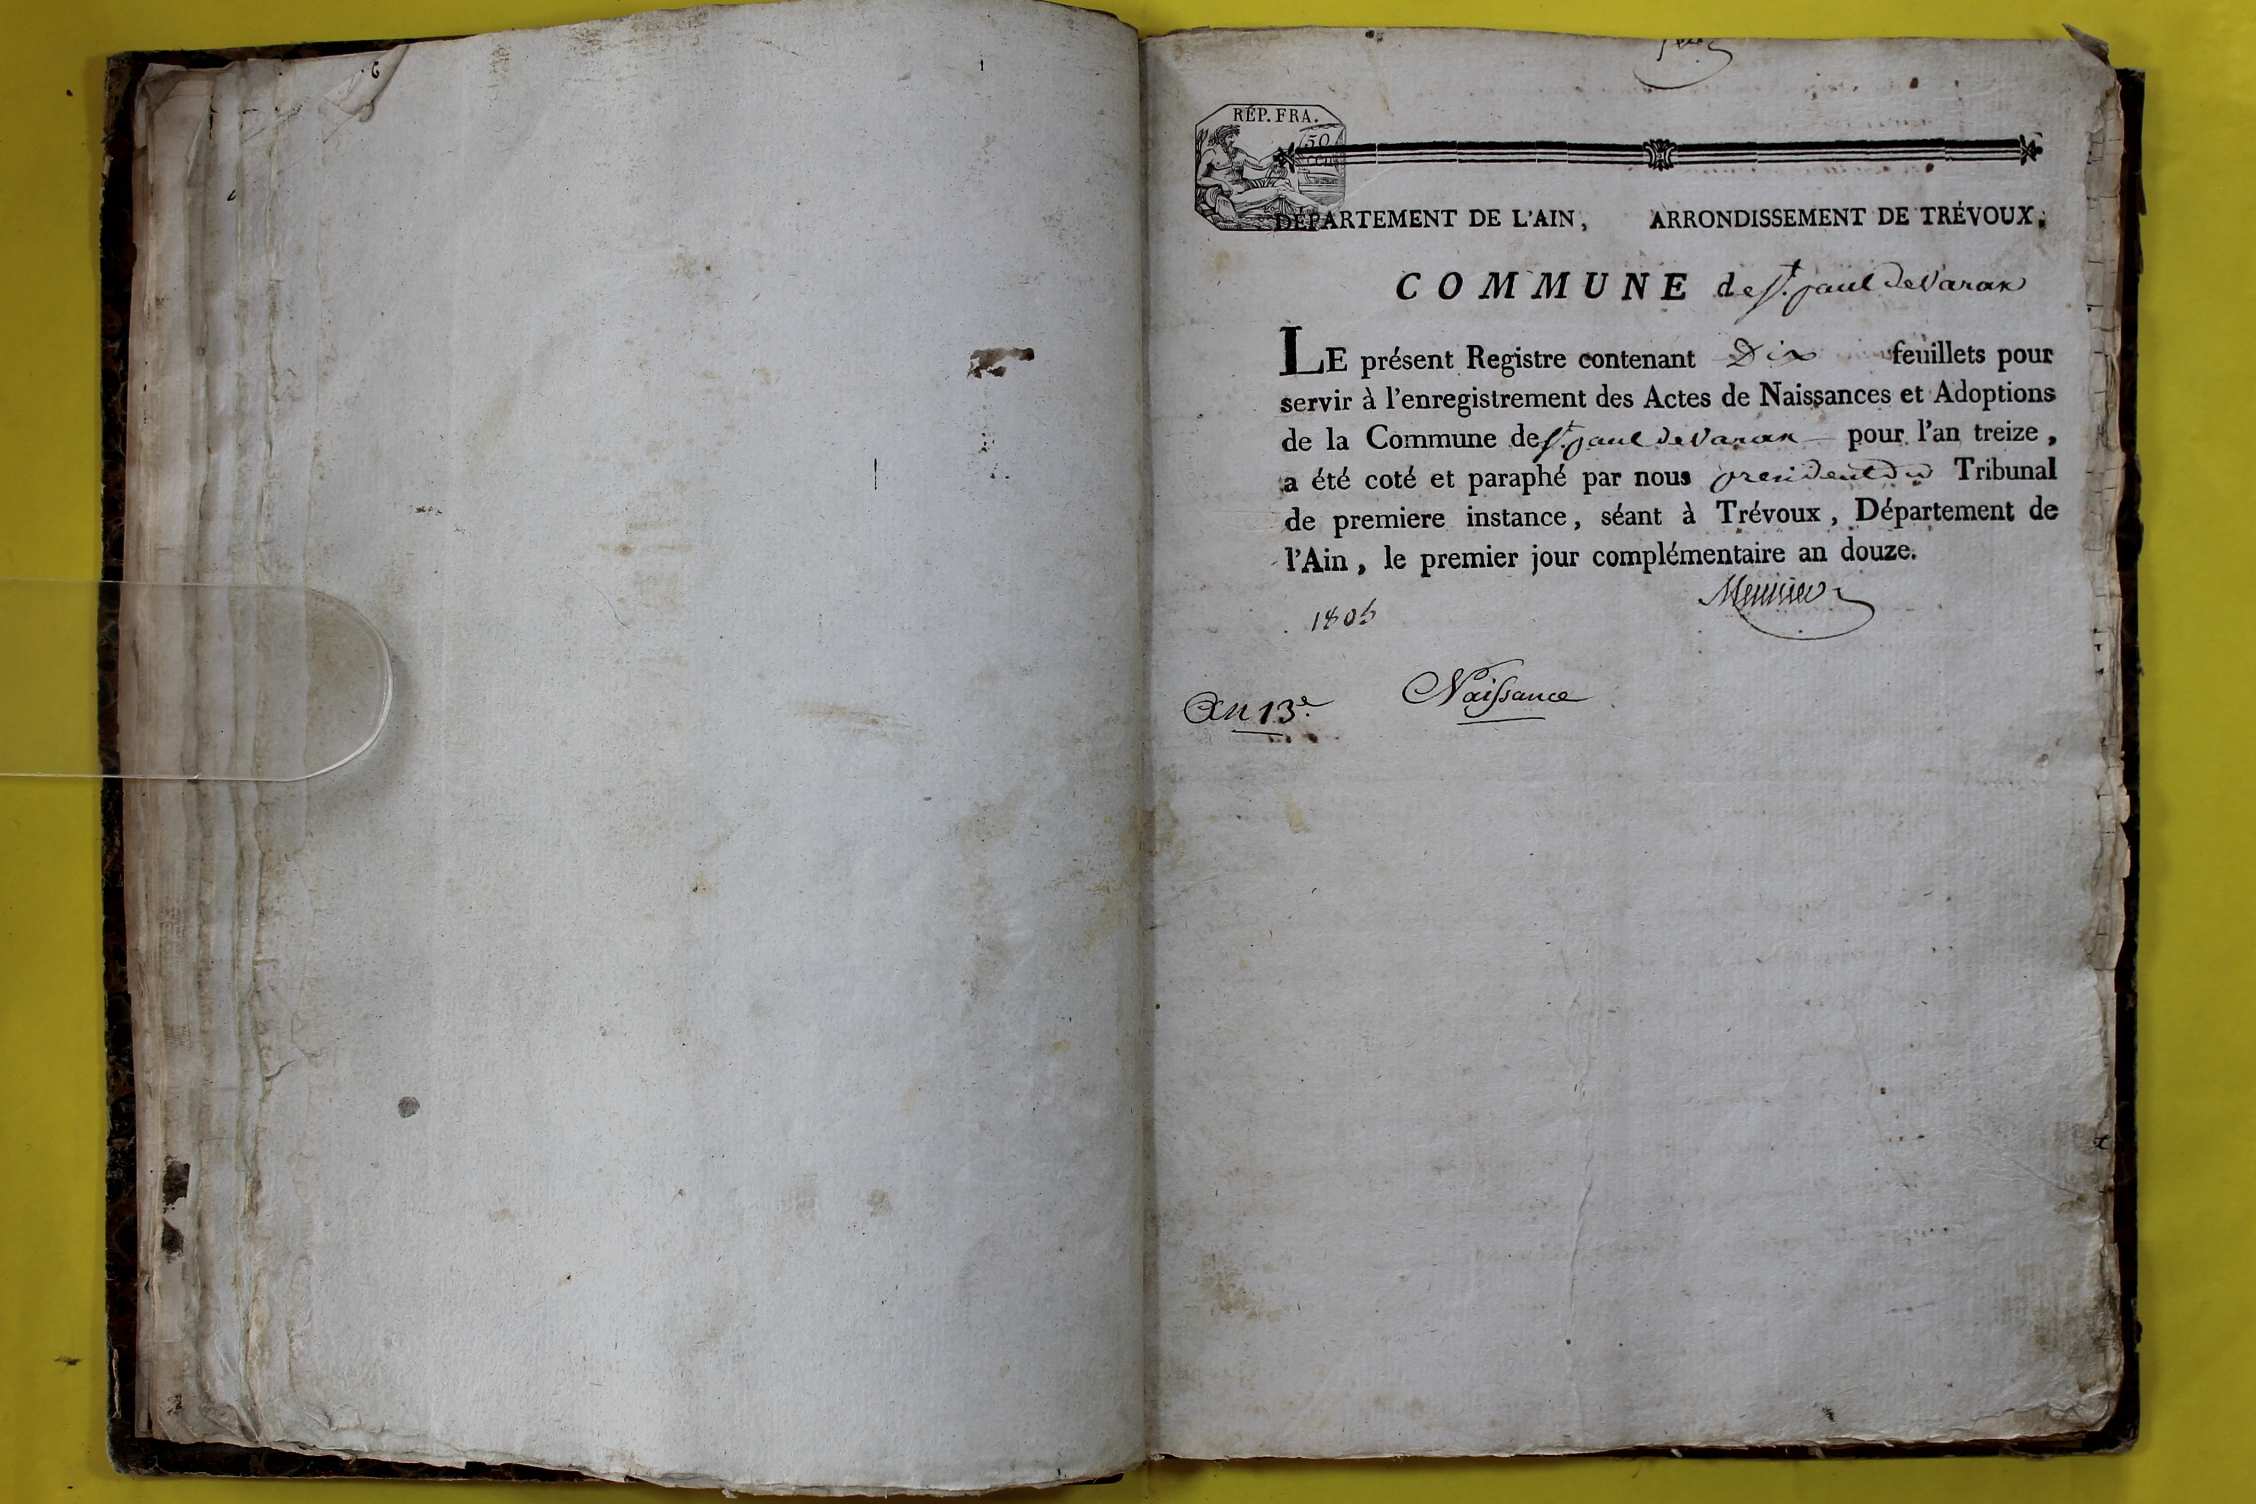 RÉP. FRA.
50
DÉPARTEMENT DE L'AIN, ARRONDISSEMENT DE TRÉVOUX,
COMMUNE de St. paul de Varax
LE présent Registre contenant Dix feuillets pour
servir à l'enregistrement des Actes de Naissances et Adoptions
de la Commune de St. paul de Varax pour l'an treize,
a été coté et paraphé par nous president du Tribunal
de premiere instance, séant à Trévoux, Département de
l'Ain, le premier jour complémentaire an douze.
1805
An 13e. Naissance